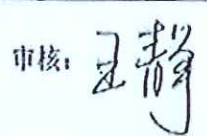 审核：王静